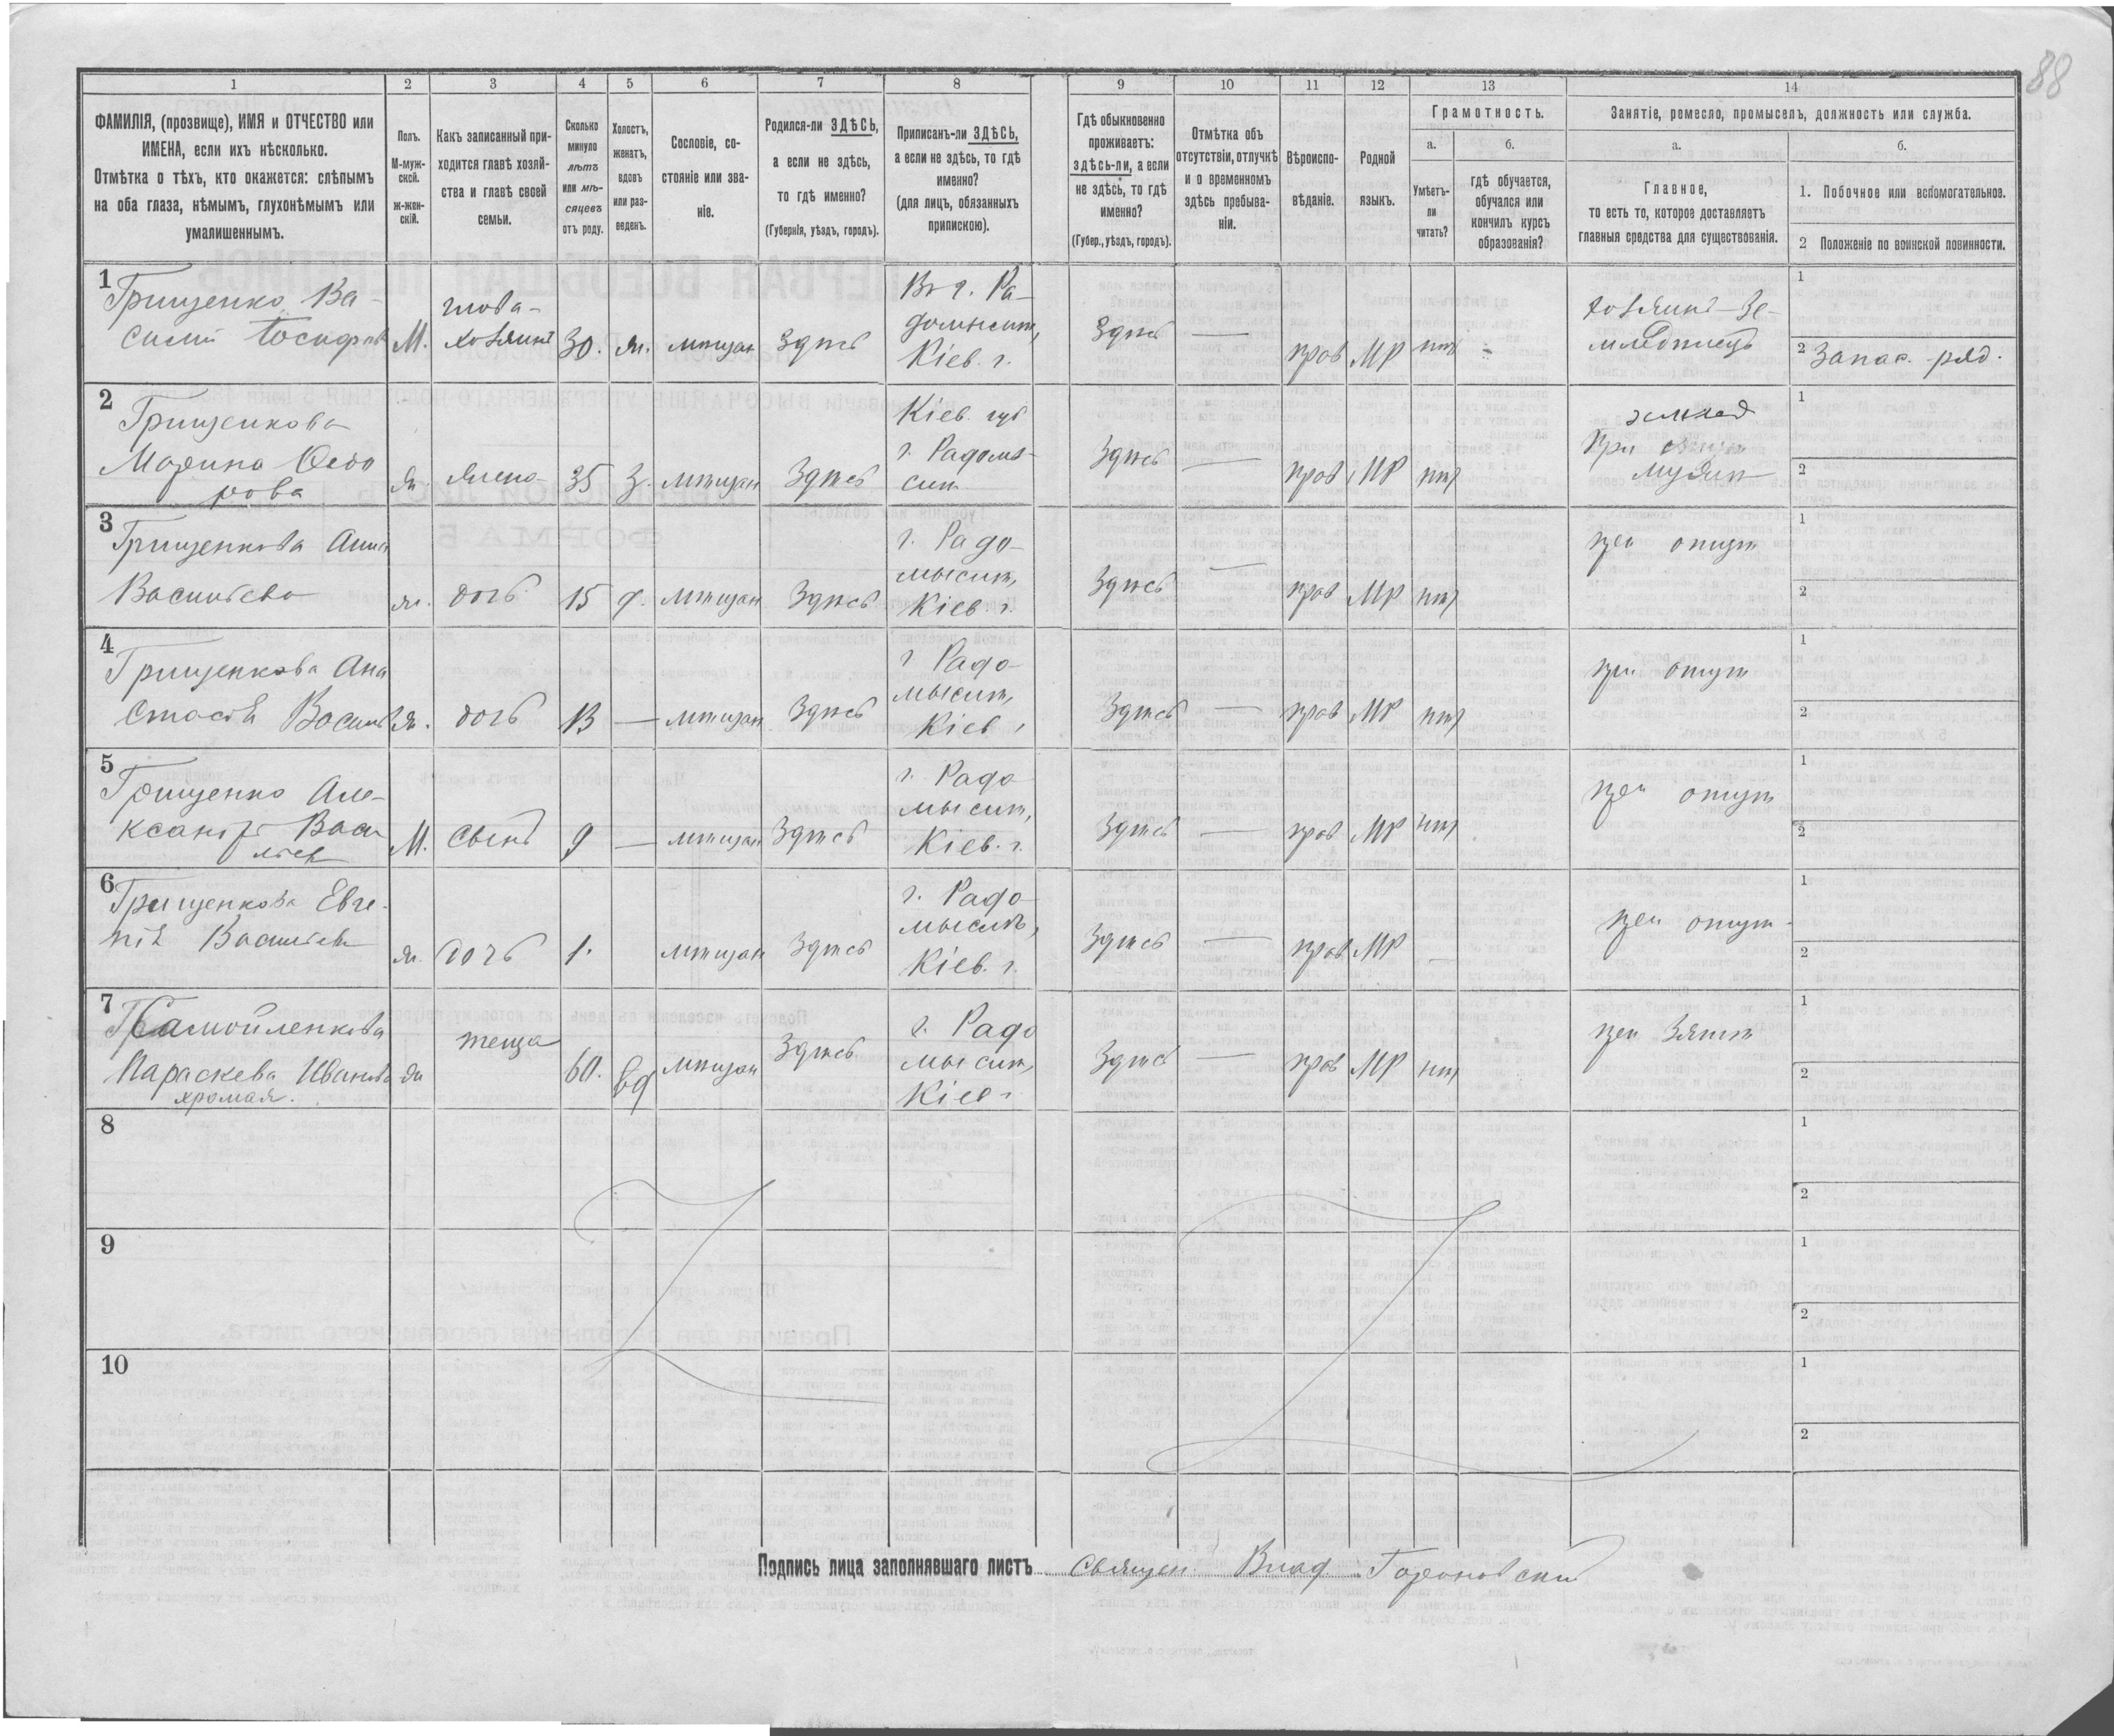 88
1 2 3 4 5 6 7 8 9 10 11 12 13 14
ФАМИЛІЯ, (прозвище), ИМЯ и ОТЧЕСТВО или
ИМЕНА, если ихъ нѣсколько.
Отмѣтка о тѣхъ, кто окажется: слѣпымъ
на оба глаза, нѣмымъ, глухонѣмымъ или
умалишеннымъ.
Полъ.
М-муж-
ской.
ж-жен-
скій.
Какъ записанный при-
ходится главѣ хозяй-
ства и главѣ своей
семьи.
Сколько
минуло
лѣтъ
или мѣ-
сяцевъ
отъ роду.
Холостъ,
женатъ,
вдовъ
или раз-
веденъ.
Сословіе, со-
стояніе или зва-
ніе.
Родился-ли ЗДѢСЬ,
а если не здѣсь,
то гдѣ именно?
(Губернія, уѣздъ, городъ).
Приписанъ-ли ЗДѢСЬ,
а если не здѣсь, то гдѣ
именно?
(для лицъ, обязанныхъ
припискою).
Гдѣ обыкновенно
проживаетъ:
здѣсь-ли, а если
не здѣсь, то гдѣ
именно?
(Губер., уѣздъ, городъ).
Отмѣтка объ
отсутствіи, отлучкѣ
и о временномъ
здѣсь пребыва-
ніи.
Вѣроиспо-
вѣданіе.
Родной
языкъ.
Грамотность.
а.
Умѣетъ-
ли
читать?
б.
гдѣ обучается,
обучался или
кончилъ курсъ
образованія?
Занятіе, ремесло, промыселъ, должность или служба.
а.
Главное,
то есть то, которое доставляетъ
главныя средства для существованія.
б.
1. Побочное или вспомогательное.
2 Положеніе по воинской повинности.
1
Грищенко Ва-
силій Іосифовъ
М.
глова-
хозяинъ
30. ж. мѣщан Здѣсь
Въ г. Ра-
домыслѣ,
Кіев. г.
Здѣсь — прав МР нѣтъ
хозяинъ-зе-
мледѣлецъ
1
2 Запас. ряд.
2
Грищенкова
Марина Федо
рова
ж. жена 35 З. мѣщан Здѣсь
Кіев. губ
г. Радомы-
слѣ
Здѣсь — прав МР нѣтъ
землед
При
мужѣ
1
2
3
Грищенкова Анна
Васильева
ж. дочь 15 д. мѣщан Здѣсь
г. Радо-
мыслѣ,
Кіев. г.
Здѣсь — прав МР нѣтъ
при отцѣ
1
2
4
Грищенкова Ана
стасія Васил
ж. дочь 13 — мѣщан Здѣсь
г Радо-
мыслѣ,
Кіев г
Здѣсь — прав МР нѣтъ
при отцѣ
1
2
5
Грищенко Але-
ксандръ Васи
льев
М. сынъ 9 — мѣщан Здѣсь
г. Радо
мыслѣ,
Кіев. г.
Здѣсь — прав МР нѣтъ
при отцѣ
1
2
6
Грищенкова Евге-
нія Васильева
ж. дочь 1. мѣщан Здѣсь
г. Радо-
мыслѣ,
Кіев. г.
Здѣсь — прав МР —
при отцѣ
1
2
7
Самойленкова
Параскева Иванова
хромая.
ж теща 60. вд мѣщан Здѣсь
г. Радо
мыслѣ,
Кіев г
Здѣсь — прав МР нѣтъ
при зятѣ
1
2
8
1
2
9
1
2
10
1
2
Подпись лица заполнявшаго листъ Священ. Влад